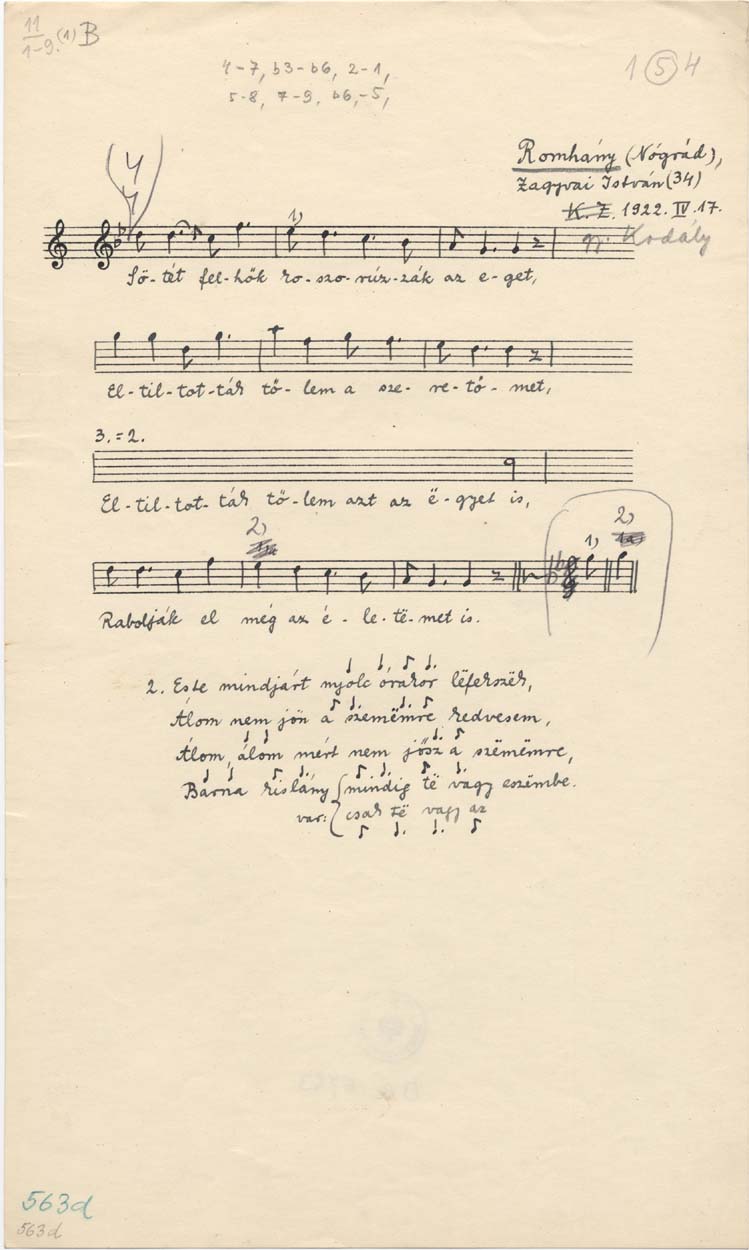 11
1-9. (1) B
4-7, b3-b6, 2-1,
5-8, 7-9, b6,-5,
1 5 4
Romhány (Nógrád),
Zagyvai István (34)
K. Z. 1922. IV. 17.
gy. Kodály
4
4
1)
Sö-tét fel-hők ro-szo-rúz-zák az e-get,
El-til-tot-ták tő-lem a sze-re-tő-met,
3. = 2.
El-til-tot-ták tő-lem azt az ë-gyet is,
2)
1)
2)
Rabolják el még az é-le-të-met is.
2. Este mindjárt nyolc órakor lëfekszëk,
Álom nem jön a szemëmre kedvesem,
Álom, álom mért nem jősz a szëmëmre,
Barna kislány mindig të vagy eszëmbe.
var: csak të vagy az
563d
563d